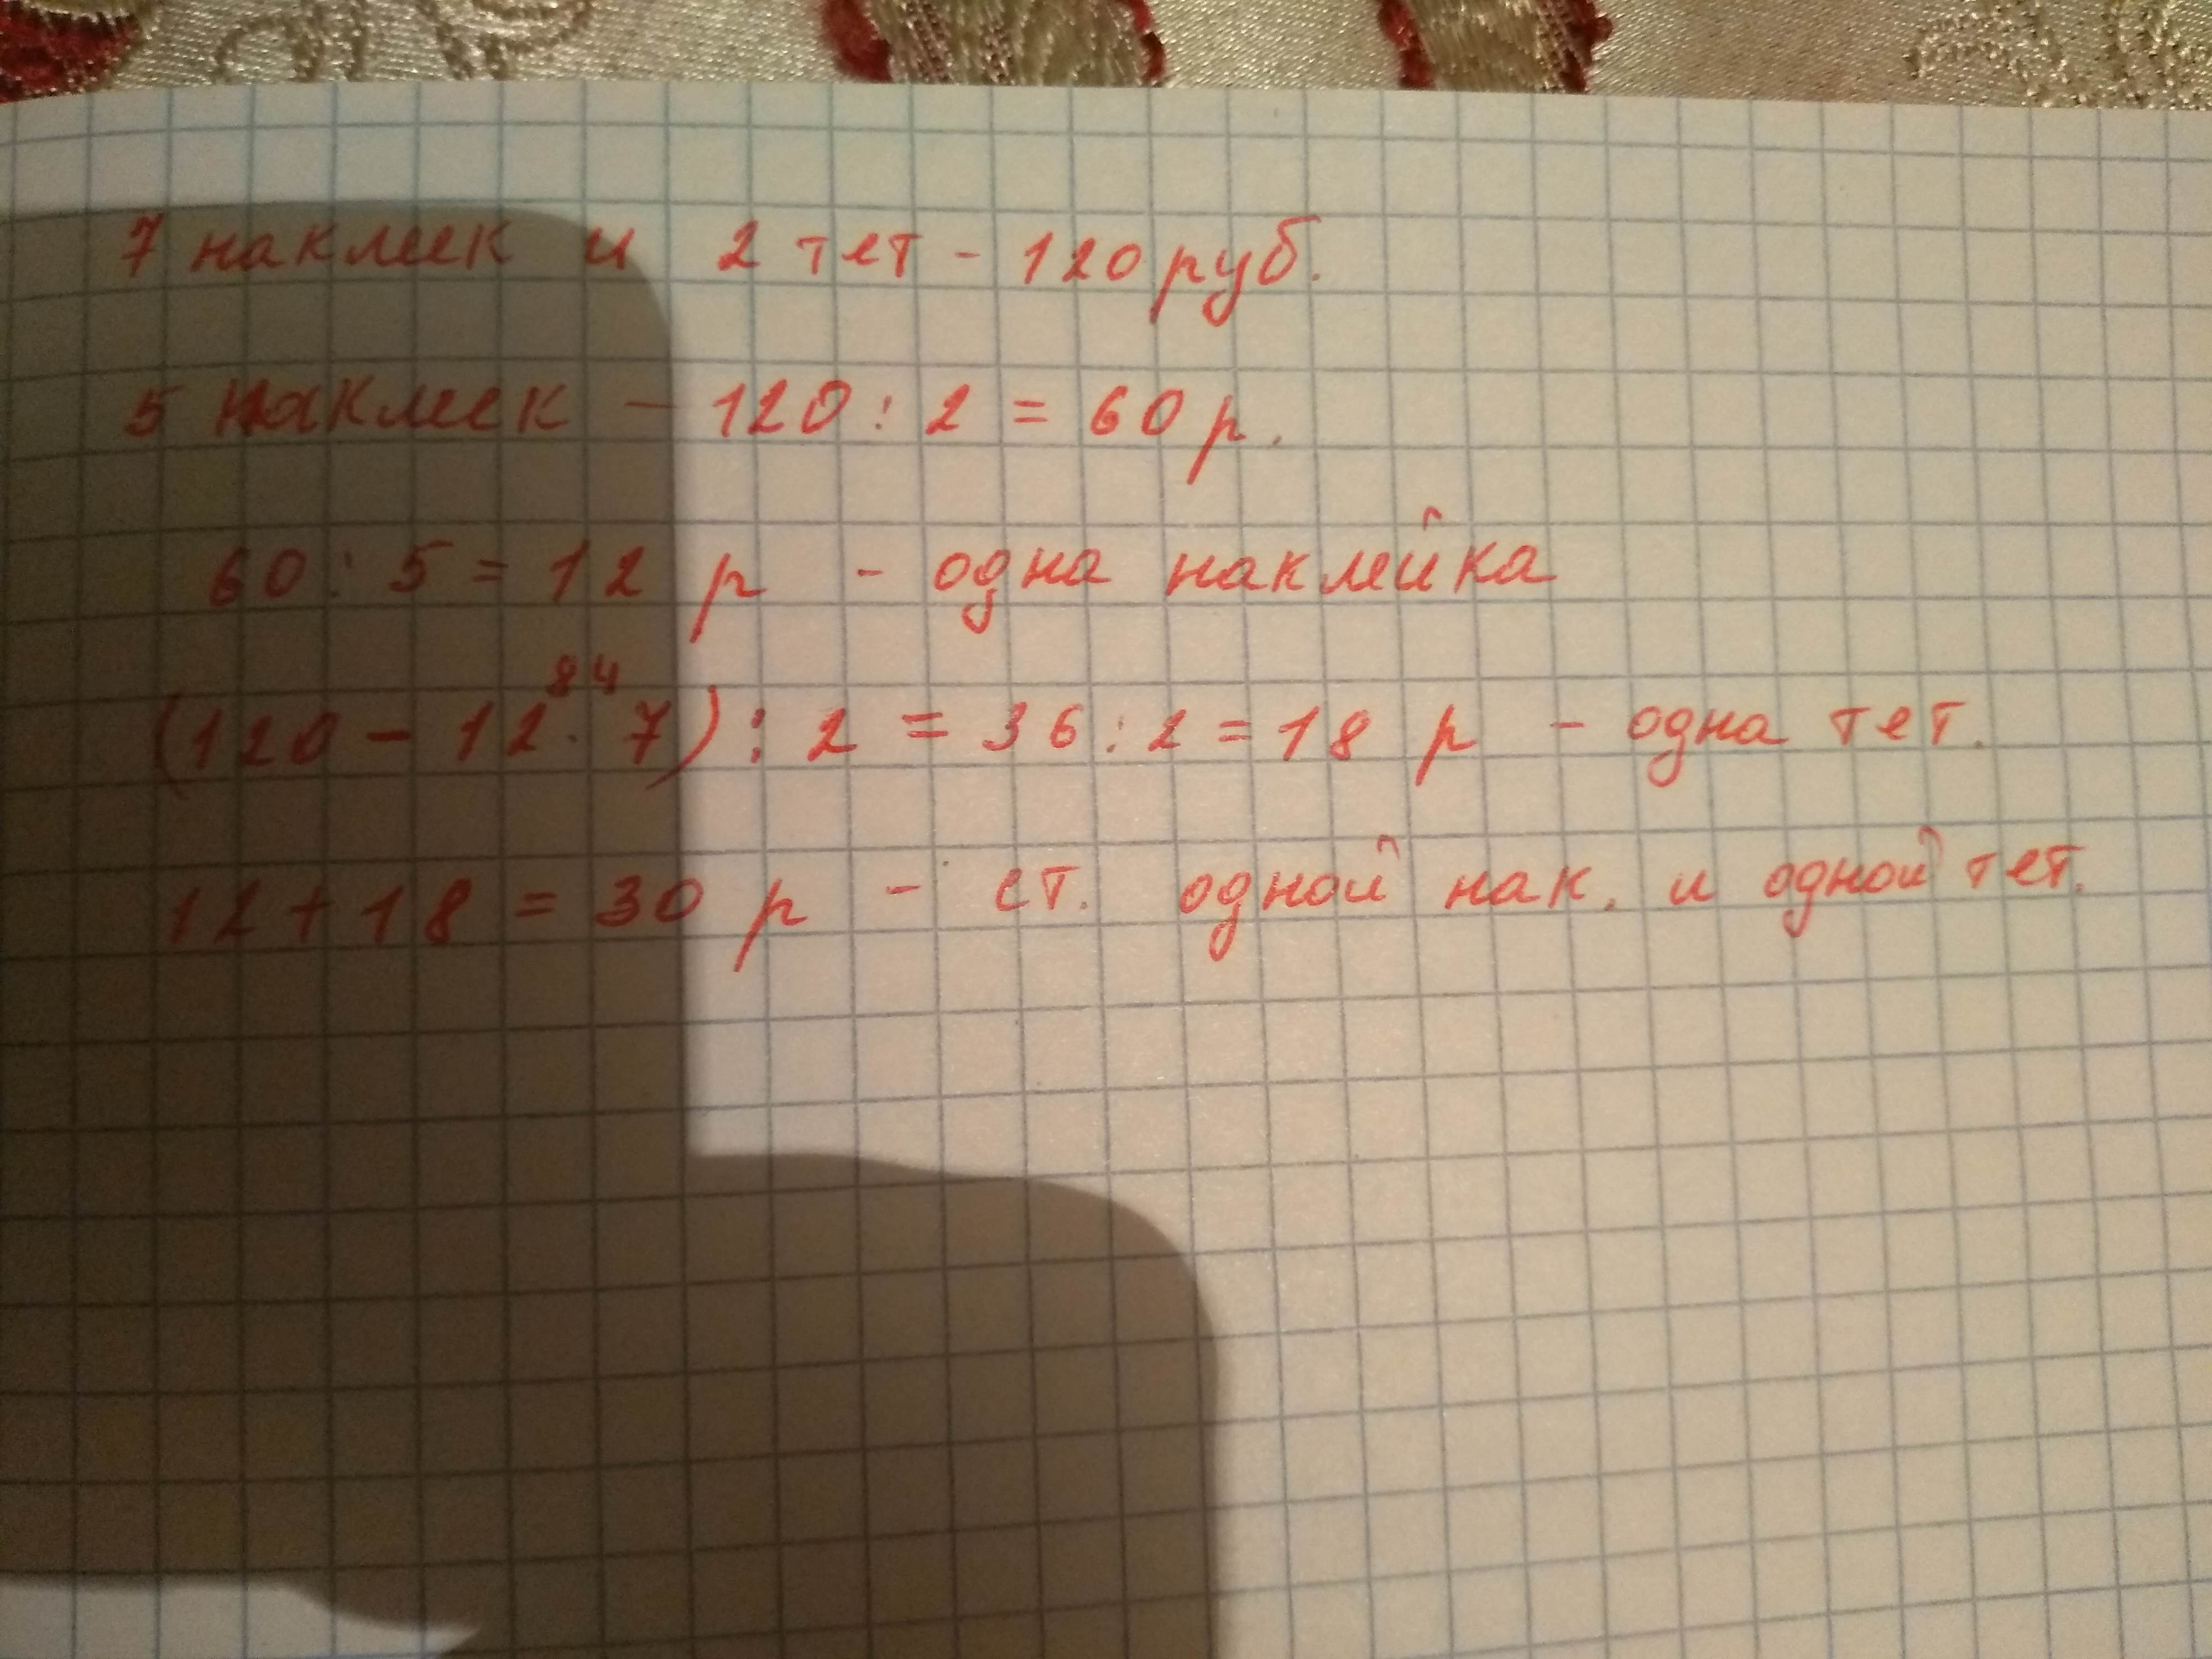 7 наклеек и 2 тет - 120 руб.
5 наклеек - 120 : 2 = 60 р.
60 : 5 = 12 р - одна наклейка
84
(120 - 12 · 7) : 2 = 36 : 2 = 18 р - одна тет.
12 + 18 = 30 р - ст. одной нак. и одной тет.